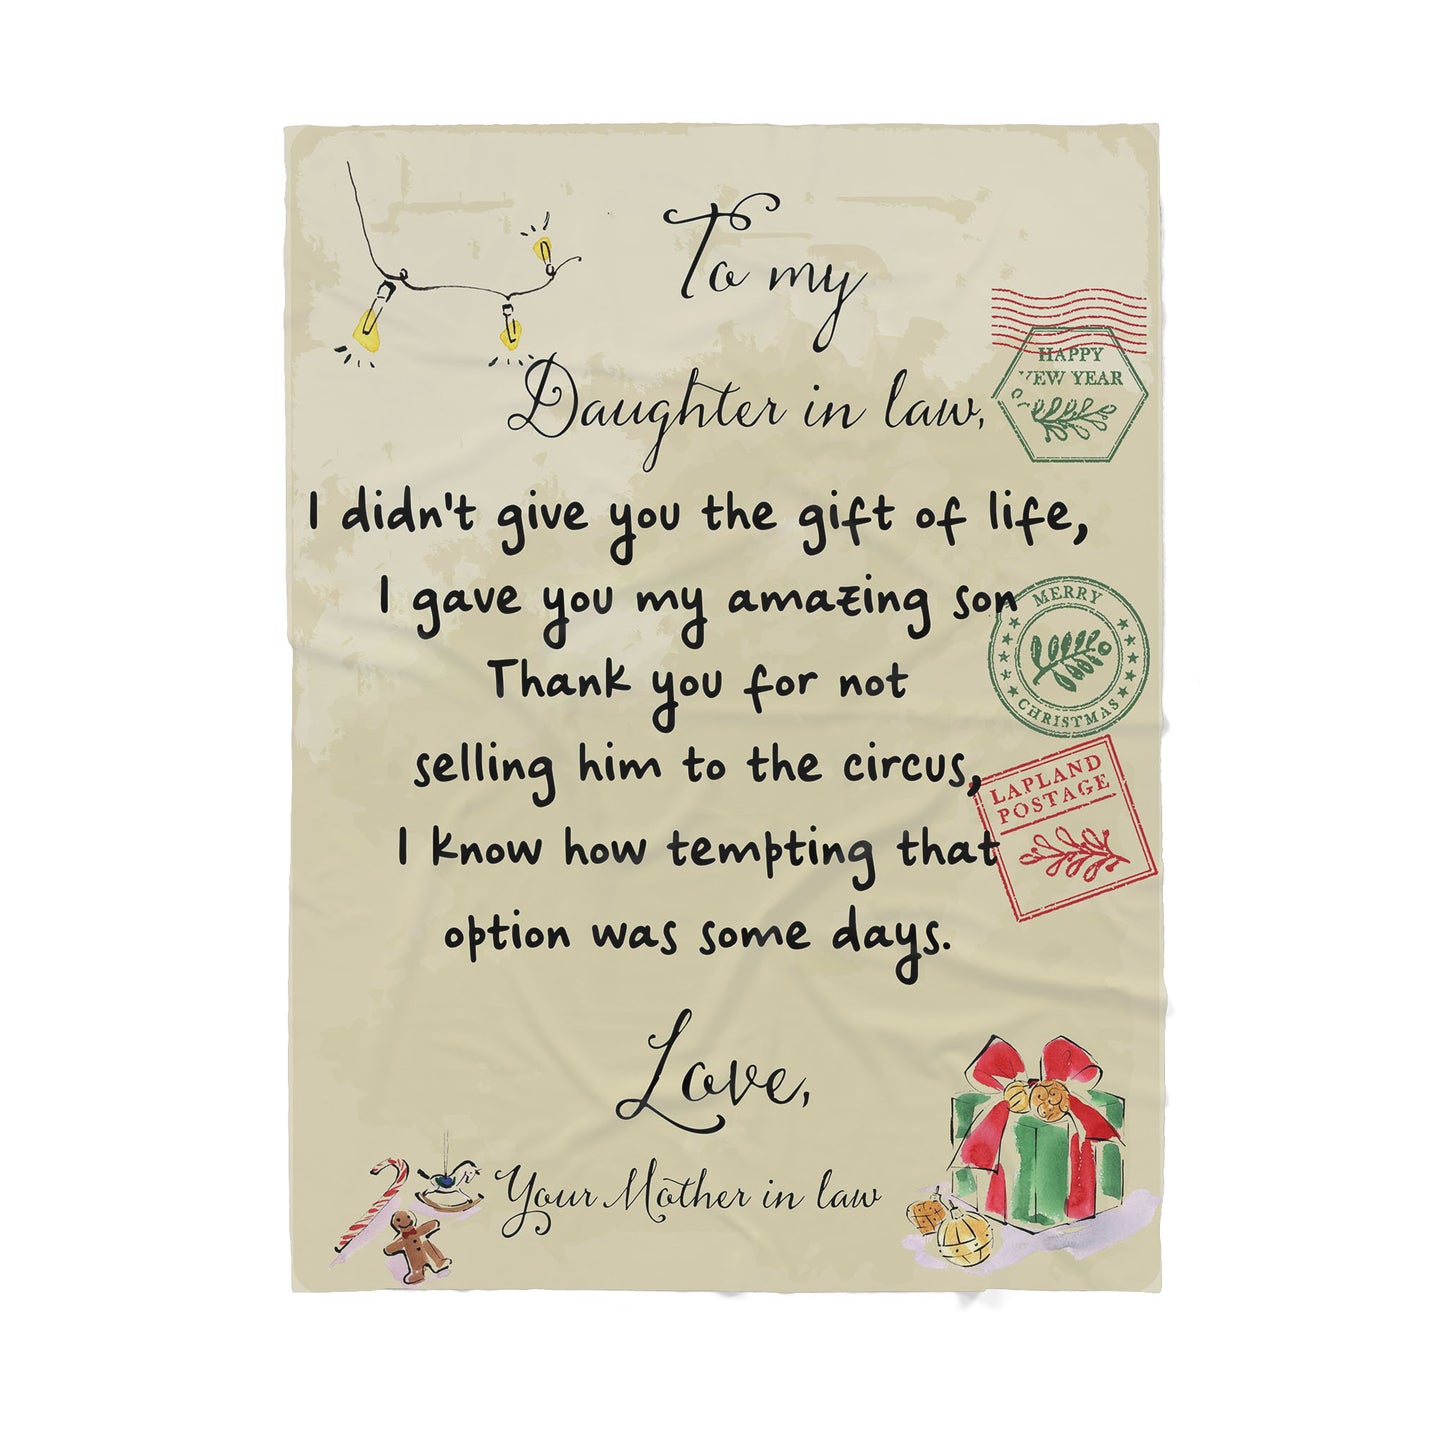 To my
Daughter in law,
HAPPY
NEW YEAR
I didn't give you the gift of life,
I gave you my amazing son
MERRY
CHRISTMAS
Thank you for not
selling him to the circus,
LAPLAND
POSTAGE
I know how tempting that
option was some days.
Love,
Your Mother in law